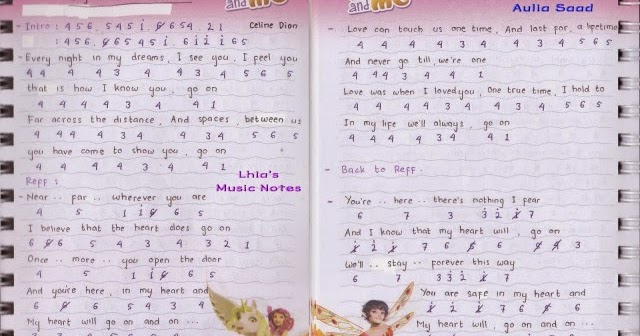 and me
- Intro : 4 5 6 . 5 4 5 i . 6 6 5 4 . 2 1 Celine Dion
: 4 5 6 . 6 6 5 4 5 i . 6 i 2 i 6 5
- Every night in my dreams, I see you, I feel you
4 4 4 4 3 4 4 4 3 4 5 6 5
that is how I know you, go on
4 4 4 4 3 4 4 1
Far across the distance, And spaces, between us
4 4 4 4 3 4 4 3 4 5 6 5
you have come to show you, go on
4 4 4 4 3 4 4 1
Reff :
- Near .. far .. wherever you are
4 5 1 i 6 6 5
I believe that the heart does go on
6 6 6 5 4 3 4 3 2 1
Once .. more .. you open the door
4 5 1 i 6 6 5
And you're here, in my heart and
6 6 5 4 3 4 5 6
My heart will go on and on ...
Lhia's
Music Notes
and me
Aulia Saad
- Love can touch us one time, And last for a lifetime
4 4 4 3 4 4 4 3 4 5 6 5
And never go till, we're one
4 4 4 3 4 4 1
Love was when I loved you, one true time, I hold to
4 4 4 4 3 4 4 3 4 5 6 5
In my life we'll always, go on
4 4 4 4 3 4 4 1
- Back to Reff.
- You're .. here .. there's nothing I fear
6 7 3 3 2 1 7
And I know that my heart will, go on
i 2 i 7 6 6 6 6 4 3
We'll .. stay .. forever this way
6 7 3 3 2 1 7
You are safe in my heart and
i 2 i 7 6 7
My heart will, go on and on ...